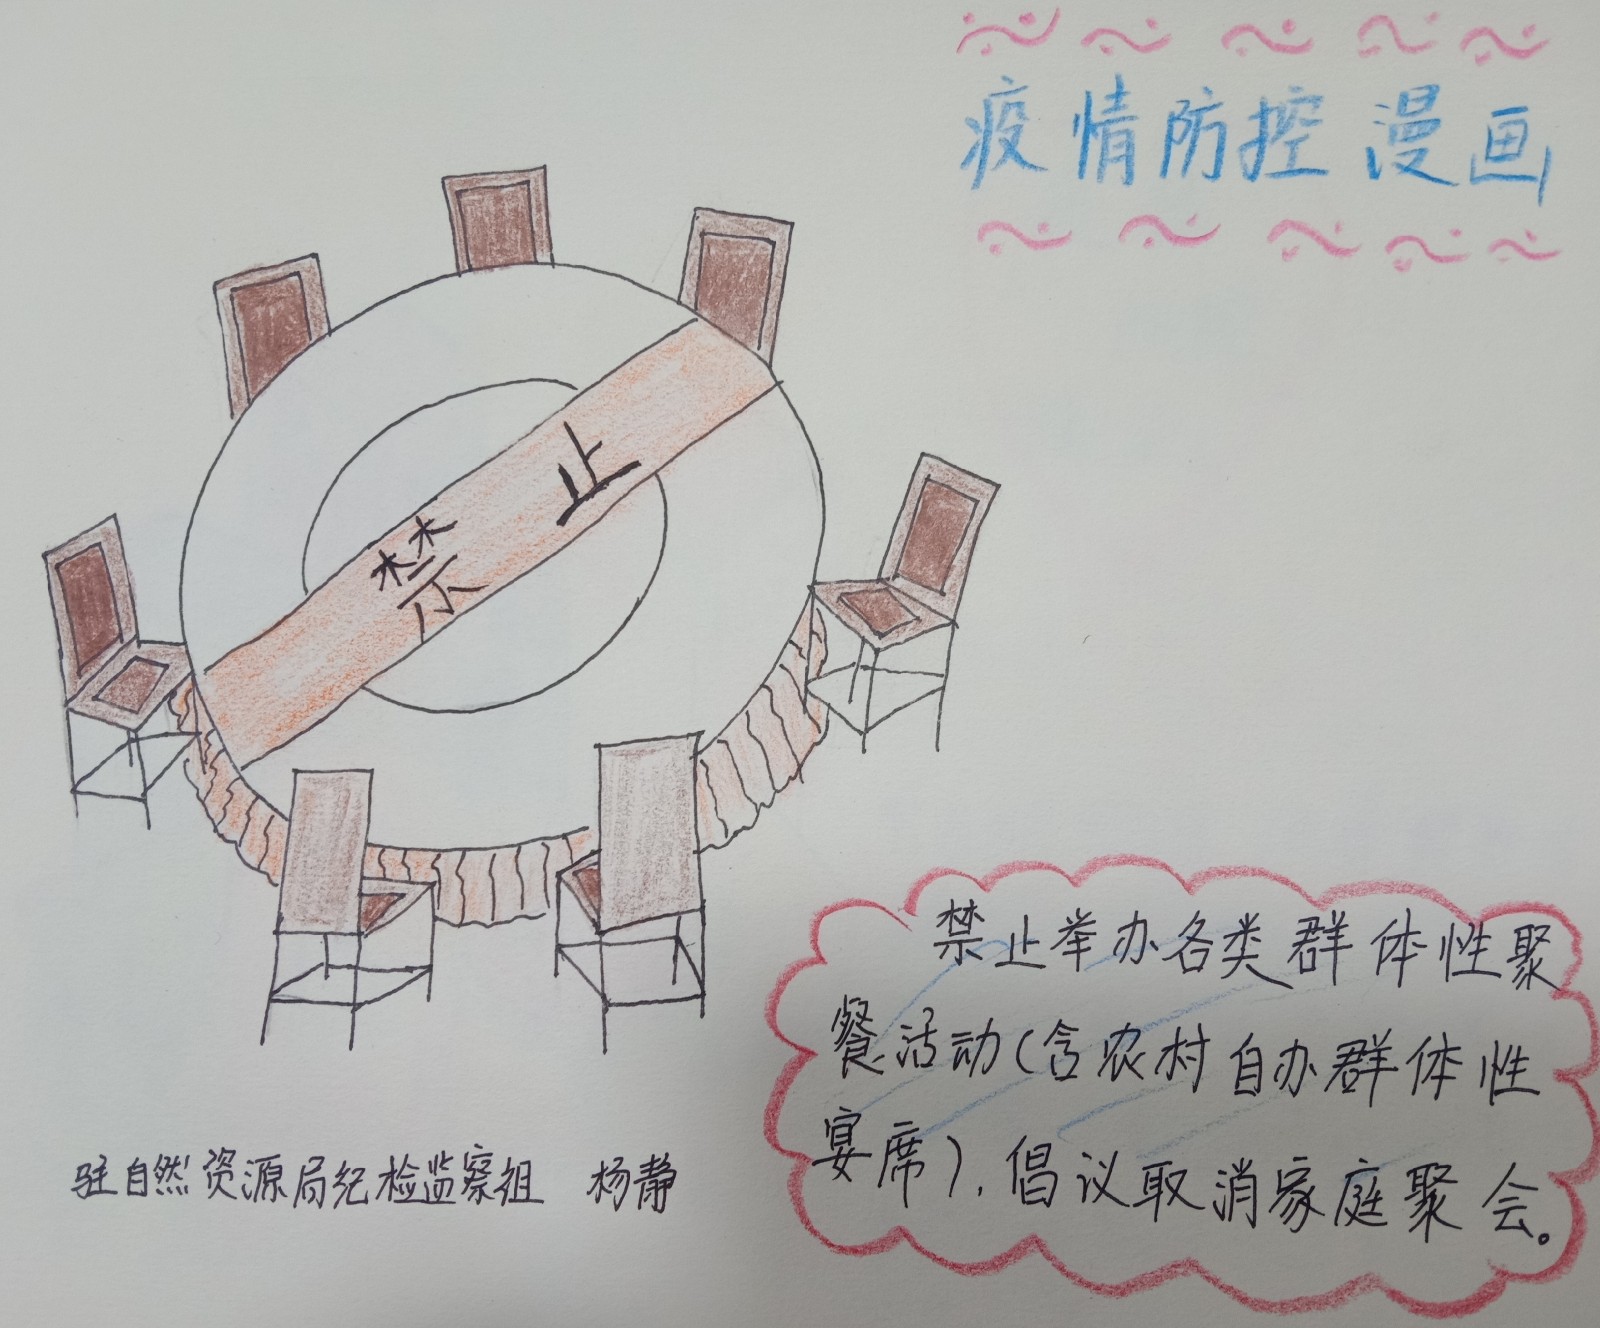 疫情防控漫画
禁止
禁止举办各类群体性聚
餐活动(含农村自办群体性
宴席),倡议取消家庭聚会。
驻自然资源局纪检监察组 杨静